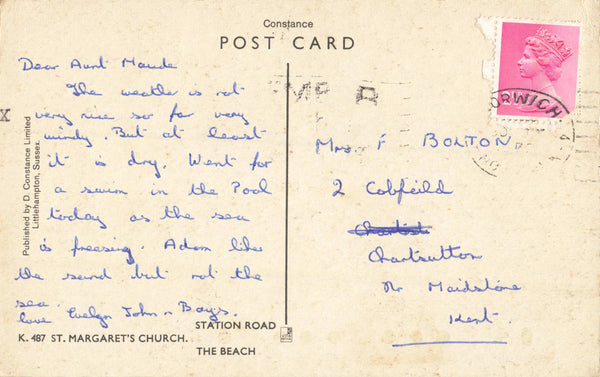 Constance
POST CARD
Dear Aunt Maude
The weather is not
very nice so far very
windy. But at least
it is dry. Went for
a swim in the Pool
today as the sea
is freezing. Adam likes
the sand but not the
sea.
love Evelyn John n Boys.
Published by D. Constance Limited
Littlehampton, Sussex.
K. 487 ST. MARGARET'S CHURCH.
STATION ROAD
THE BEACH
NORWICH
Mrs F BOLTON
2 Cobfeild
Chartsutton
Nr Maidstone
Kent.